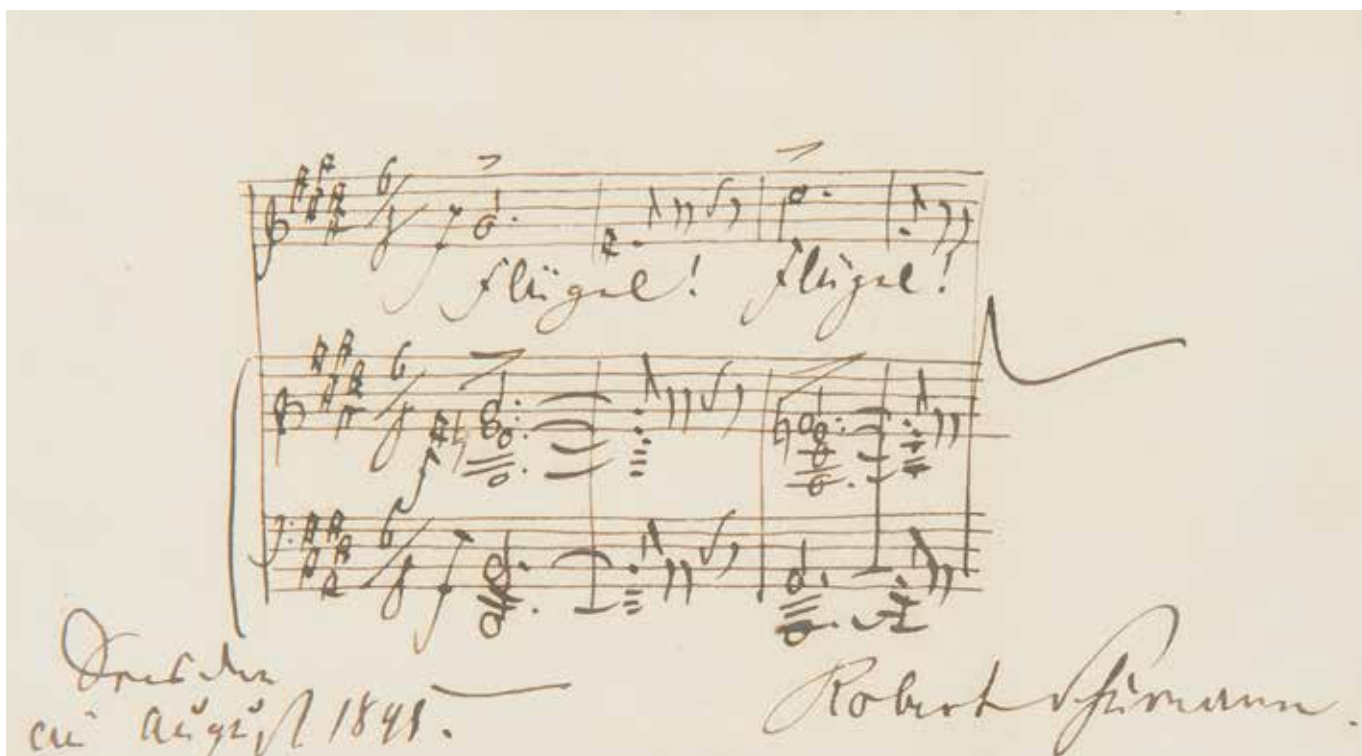 Flügel! Flügel!
Dresden
im August 1845.
Robert Schumann.